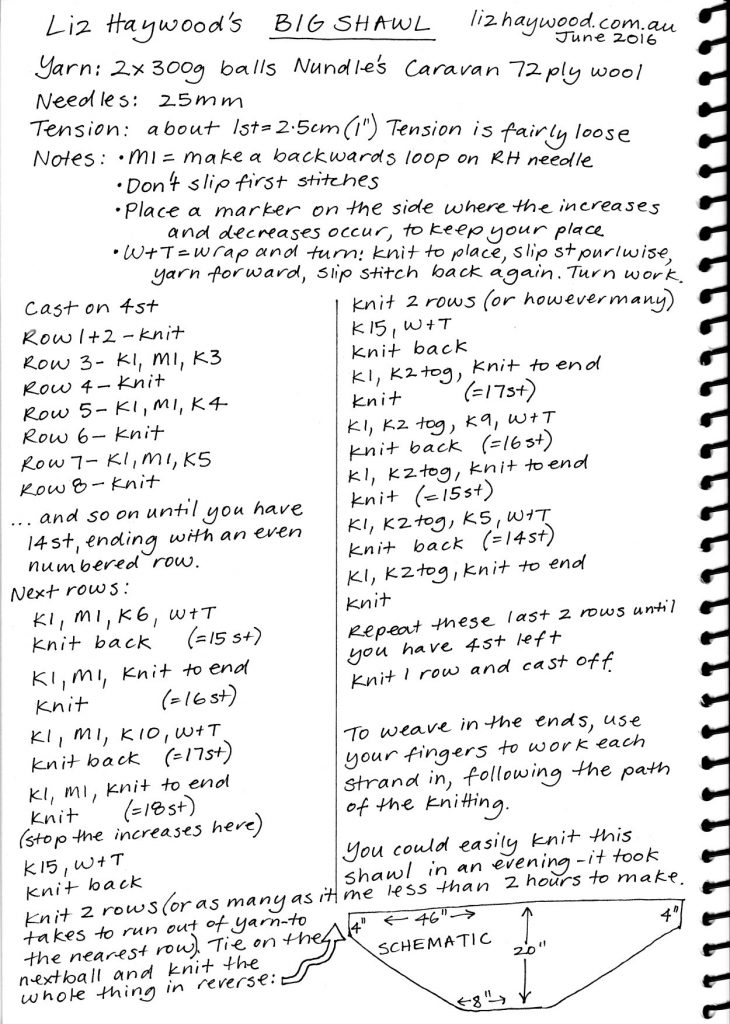 Liz Haywood's BIG SHAWL lizhaywood.com.au
June 2016
Yarn: 2x300g balls Nundle's Caravan 72ply wool
Needles: 25mm
Tension: about 1st=2.5cm(1") Tension is fairly loose
Notes: •M1 = make a backwards loop on RH needle
•Don't slip first stitches
•Place a marker on the side where the increases
and decreases occur, to keep your place
•W+T=wrap and turn: knit to place, slip st purlwise,
yarn forward, slip stitch back again. Turn work.
Cast on 4st
Row 1+2 - Knit
Row 3- K1, M1, K3
Row 4- Knit
Row 5- K1, M1, K4
Row 6- Knit
Row 7- K1, M1, K5
Row 8- Knit
... and so on until you have
14st, ending with an even
numbered row.
Next rows:
K1, M1, K6, W+T
Knit back (=15st)
K1, M1, Knit to end
Knit (=16st)
K1, M1, K10, W+T
Knit back (=17st)
K1, M1, Knit to end
Knit (=18st)
(stop the increases here)
K15, W+T
Knit back
Knit 2 rows (or as many as it
takes to run out of yarn-to
the nearest row). Tie on the
nextball and knit the
whole thing in reverse:
Knit 2 rows (or however many)
K15, W+T
Knit back
K1, K2tog, Knit to end
Knit (=17st)
K1, K2 tog, K9, W+T
Knit back (=16st)
K1, K2tog, Knit to end
Knit (=15st)
K1, K2tog, K5, W+T
Knit back (=14st)
K1, K2tog, Knit to end
Knit
Repeat these last 2 rows until
you have 4st left
Knit 1 row and cast off.
To weave in the ends, use
your fingers to work each
strand in, following the path
of the knitting.
You could easily knit this
shawl in an evening-it took
me less than 2 hours to make.
4" 46" 4"
SCHEMATIC 20"
8"